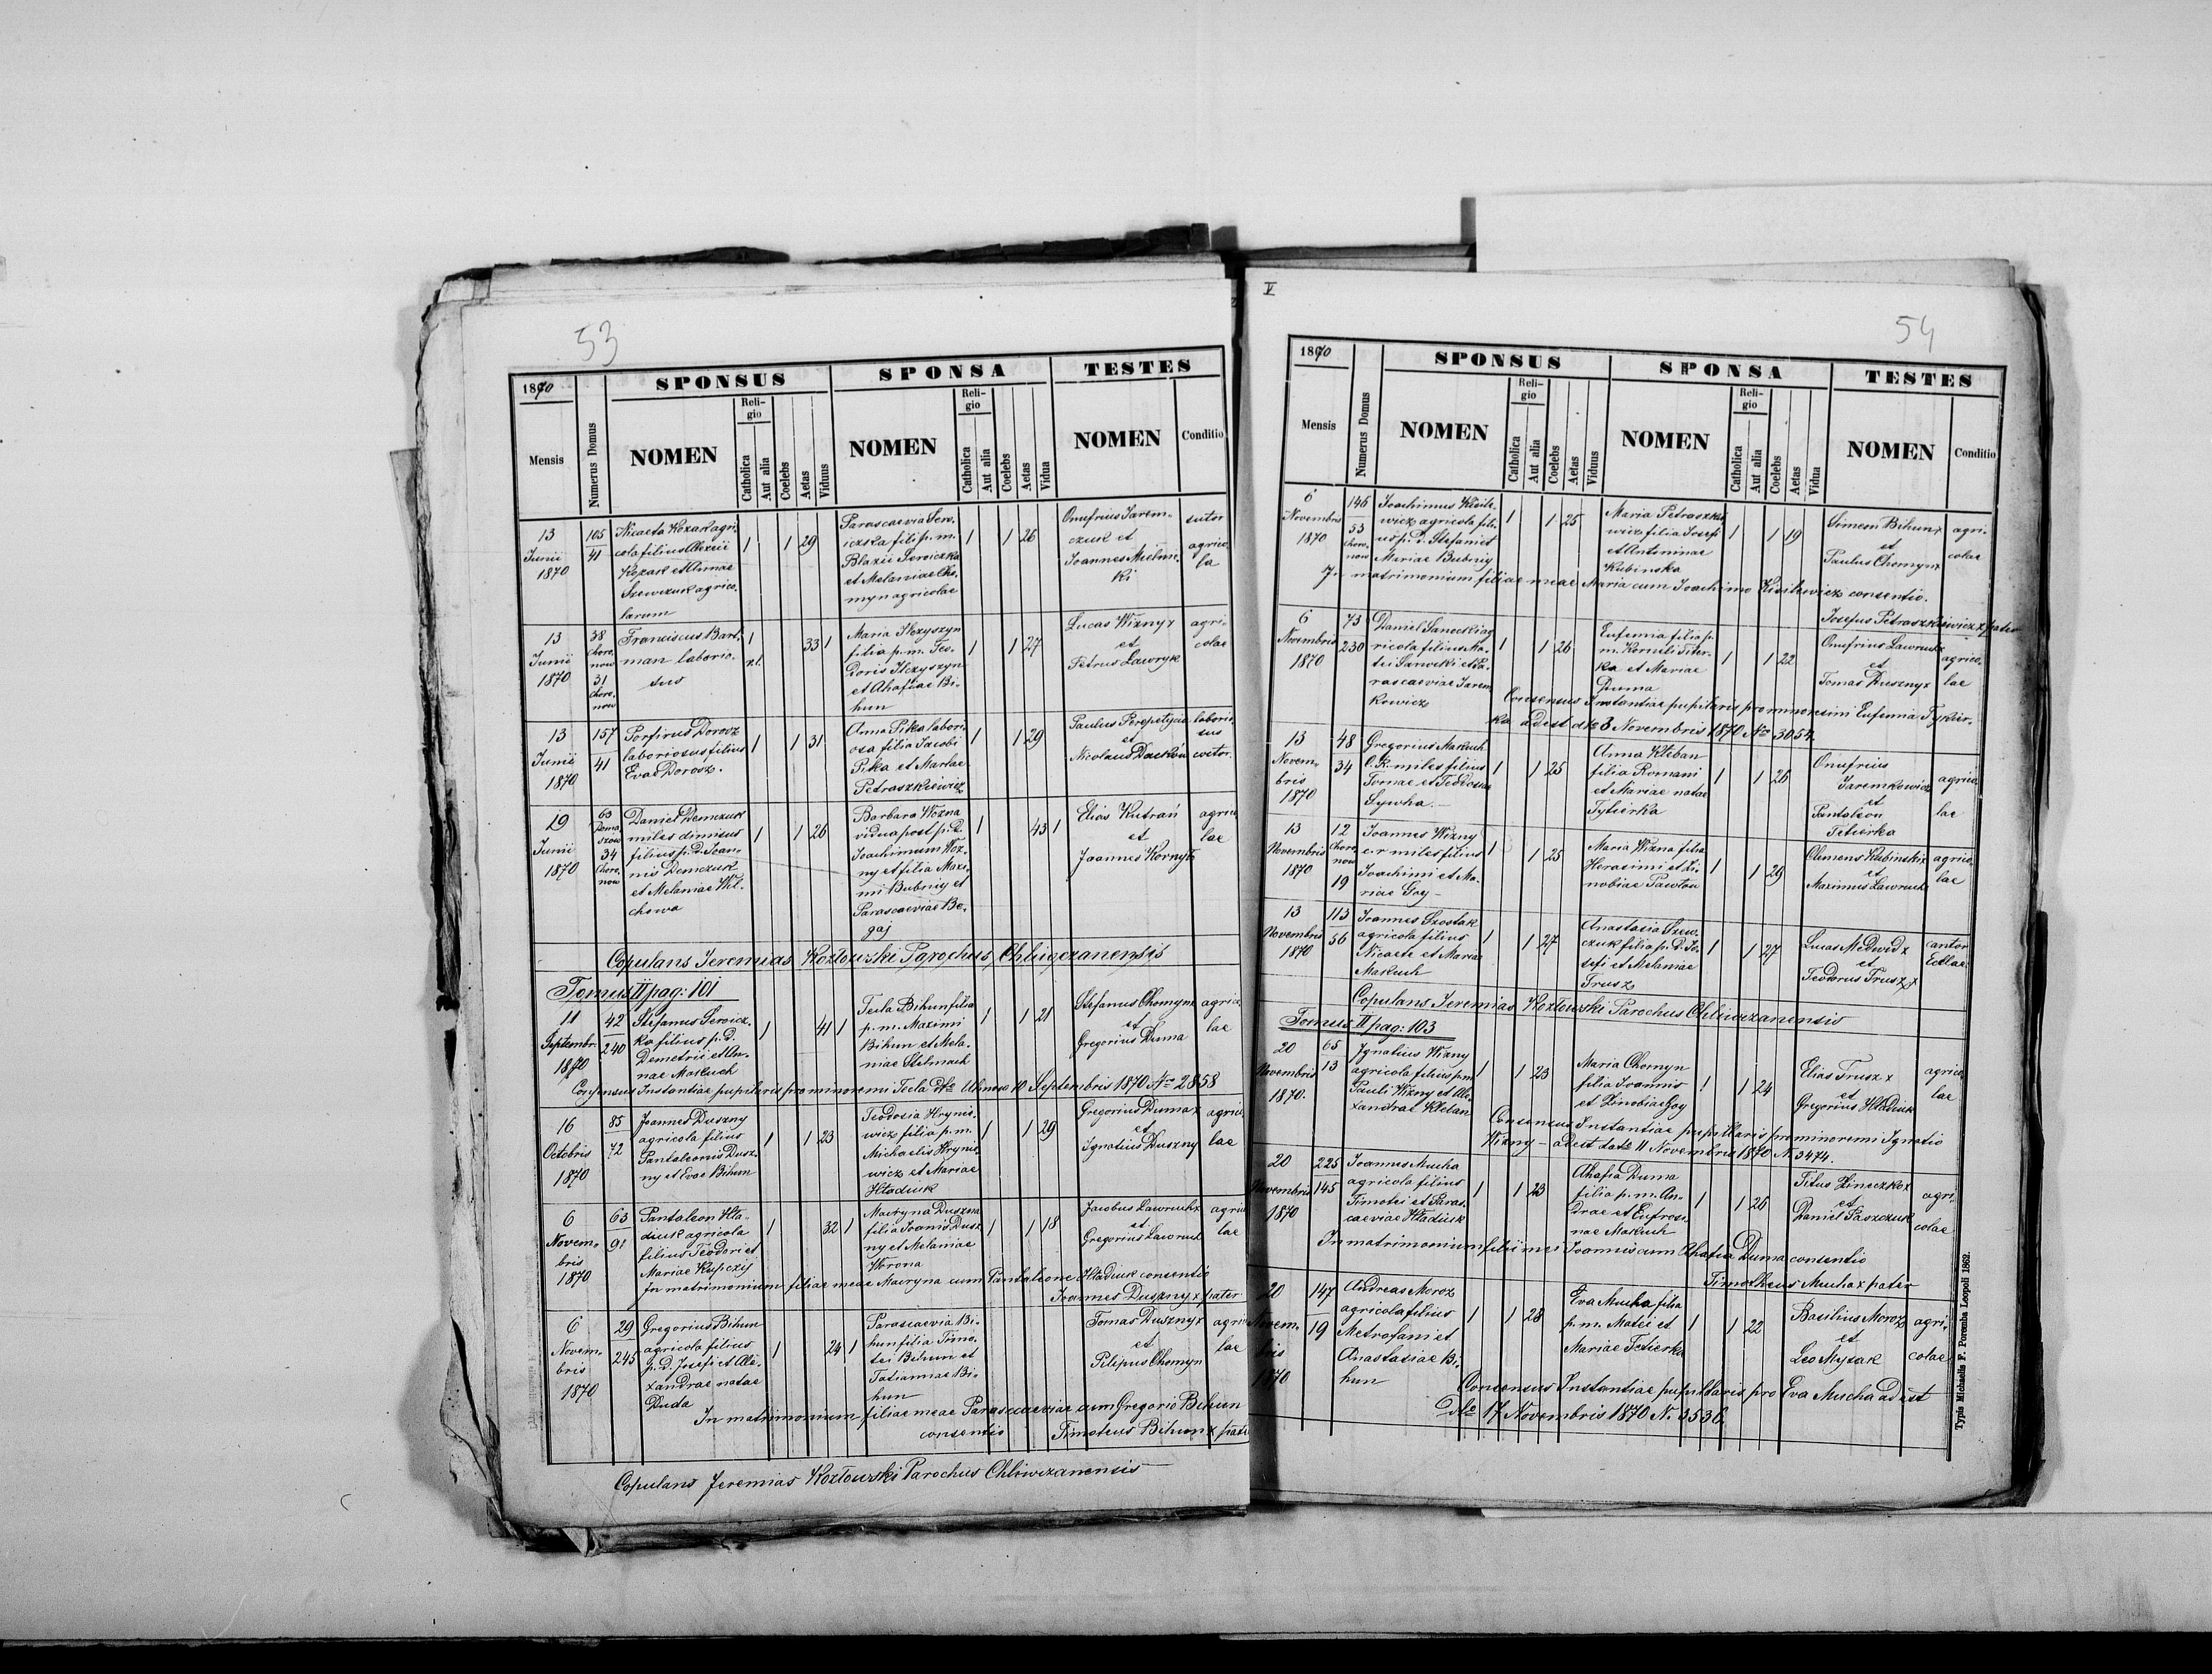 53
1870
SPONSUS
SPONSA
TESTES
Mensis
Numerus Domus
NOMEN
Reli-
gio
Catholica
Aut alia
Coelebs
Aetas
Viduus
NOMEN
Reli-
gio
Catholica
Aut alia
Coelebs
Aetas
Vidua
NOMEN
Conditio
13
Junii
1870
105
41
Nicaeta Kozak agri-
cola filius Alexeii
Kozak et Annae
Szewczuk agrico-
larum
1
1
29
Parascaevia Serw-
iczka filia p. m.
Blazii Serwiczka
et Melaniae Cho-
myn agricolae
1
1
26
Onufrius Jarem-
czuk et
Joannes Mielni-
ki
sutor
agrico-
la
13
Junii
1870
38
Chore-
now
31
Chore-
now
Franciscus Bart-
man laborio-
sus
1
r.l.
33
1
Maria Ilczyszyn
filia p. m. Teo-
doris Ilczyszyn
et Ahafiae Bi-
hun
1
1
27
Lucas Wizny x
et
Petrus Lawryk
agri-
colae
13
Junii
1870
157
41
Porfirus Dorosz
laboriosus filius
Evae Dorosz.
1
1
31
Anna Pika labori-
osa filia Jacobi
Pika et Marlae
Petraszkiewicz
1
1
29
Paulus Perepetycia
et
Nicolaus Daćków
laborio-
sus
19
Junii
1870
63
34
Chore-
now
Daniel Demczuk
miles dimisus
filius p. D. Joan-
nis Demczuk
et Melaniae Wil-
chowa
1
1
26
Barbara Wozna
vidua post p. D.
Joachimum Woz-
ny et filia Maxi-
mi Bubniy et
Parascaeviae Be-
gaj
1
43
1
Elias Kutrań
et
Joannes Kornyło
agrico-
lae
Copulans Jeremias Kozłowski Parochus Chliwczanensis
Tomus II pag: 101
11
Septembr.
1870
42
240
Stefanus Serwicz-
ka filius p. D.
Demetrii et An-
nae Makuch
1
41
1
Tecla Bihun filia
p. m. Maximi
Bihun et Mela-
niae Stelmach
1
1
21
Stefanus Chomyn x
et
Gregorius Duma
agrico-
lae
Consensus Instantiae pupilaris pro minoremi Tecla dto Uhnow 10 Septembris 1870 Nro 2858
16
Octobris
1870
85
72
Joannes Duszny
agricola filius
Pantaleonis Dusz-
ny et Evae Bihun
1
1
23
Teodosia Hrynie-
wicz filia p. m.
Michaelis Hrynie-
wicz et Mariae
Hładiuk
1
1
29
Gregorius Duma x
et
Ignatius Duszny
agrico-
lae
6
Novem-
bris
1870
63
91
Pantaleon Hła-
diuk agricola
filius Teodori et
Mariae Kupczij
1
32
1
Macryna Duszna
filia Joanis Dusz-
ny et Melaniae
Worona
1
1
18
Jacobus Lawruch x
et
Gregorius Lawruch
agrico-
lae
In matrimonium filiae meae Macryna cum Pantaleone Hładiuk consentio
Joannes Duszny x pater
6
Novem-
bris
1870
29
245
Gregorius Bihun
agricola filius
p. D. Josefi et Ale-
xandrae natae
Duda
1
24
1
Parascaevia Bi-
hun filia Timo-
tei Bihun et
Tatiannae Bi-
hun
Tomas Duszny x
et
Pilipus Chomyn
agrico-
lae
In matrimonium filiae meae Parascaeviae cum Gregorio Bihun
consentio Timoteus Bihun x pater
Copulans Jeremias Kozłowski Parochus Chliwczanensis
V
54
1870
SPONSUS
SPONSA
TESTES
Mensis
Numerus Domus
NOMEN
Reli-
gio
Catholica
Aut alia
Coelebs
Aetas
Viduus
NOMEN
Reli-
gio
Catholica
Aut alia
Coelebs
Aetas
Vidua
NOMEN
Conditio
6
Novembris
1870
146
53
Chore-
now
Joachimus Kisile-
wicz agricola fili-
us p. D. Stefani et
Mariae Bubniy
1
1
25
Maria Petraszkie-
wicz filia Josefi
et Antoninae
Kubinska
1
1
19
Simeon Bihun x
et
Paulus Chomyn x
agri-
colae
In matrimonium filiae meae Maria cum Joachimo Kisilewicz consentio.
Josefus Petraszkiewicz x pater
6
Novembris
1870
73
230
Daniel Sanocki ag-
ricola filius Ma-
tei Sanocki et Pa-
rascaeviae Jarem-
kowicz
1
1
26
Eufemia filia p.
m. Kornili Teter-
ka et Mariae
Duma
1
1
22
Onufrius Lawruch x
et
Tomas Duszny x
agrico-
lae
Consensus Instantiae pupilaris pro minoremi Eufemia Tykier-
ka adest dto 3 Novembris 1870 Nro 3054.
13
Novem-
bris
1870
48
34
Gregorius Makuch
C. R. miles filius
Tomae et Teodosiae
Sywha.-
1
1
25
Anna Kleban
filia Romani
et Mariae natae
Tytierka
1
1
26
Onufrius
Jaremkowicz
et
Pantaleon
Tetierka
agrico-
lae
13
Novembris
1870
12
Chore-
now
19
Joannes Wizny
c. r. miles filius
Joachimi et Ma-
riae Goy -
1
1
25
Maria Wizna filia
Herasimi et Zi-
nobiae Pawłow
1
1
29
Clemens Kubinski x
et
Maximus Lawruch
agrico-
lae
13
Novembris
1870
113
56
Joannes Szostak
agricola filius
Nicaete et Mariae
Makuch
1
1
27
Anastasia Szew-
czuk filia p. D. Jo-
sefi et Melaniae
Trusz
1
1
27
Lucas Medwid x
et
Teodorus Trusz x
cantor
Ecclae:
Copulans Jeremias Kozłowski Parochus Chliwczanensis
Tomus II pag: 103
20
Novembris
1870.
65
13
Ignatius Wizny
agricola filius p. m.
Pauli Wizny et Ale-
xandrae Kleban
1
1
23
Maria Chomyn
filia Joannis
et Zinobiae Goy
1
1
24
Elias Trusz x
et
Gregorius Hładiuk
agrico-
lae
Consensus Instantiae pupillaris pro minoremi Ignatio
Wizny - adest dato 11 Novembris 1870 N. 3474.
20
Novembris
1870
225
145
Joannes Mucha
agricola filius
Timotei et Paras-
caeviae Hładiuk
1
1
23
Ahafia Duma
filia p. m. An-
drae et Eufrosi-
nae Makuch
1
1
26
Titus Zineczko x
et
Daniel Paszczuk
agri-
colae
In matrimonium filii mei Joannis cum Ahafia Duma consentio
Timotheus Mucha x pater
20
Novem-
bris
1870
147
19
Andreas Moroz
agricola filius
Metrofani et
Anastasiae Bi-
hun
1
1
28
Eva Mucha filia
p. m. Matei et
Mariae Tetierka
1
1
22
Basilius Moroz
et
Leo Myzak
agri-
colae
Consensus Instantiae pupillaris pro Eva Mucha adest
dto 17 Novembris 1870 N. 3536.
Typis Michaelis F. Poremba Leopoli 1862.